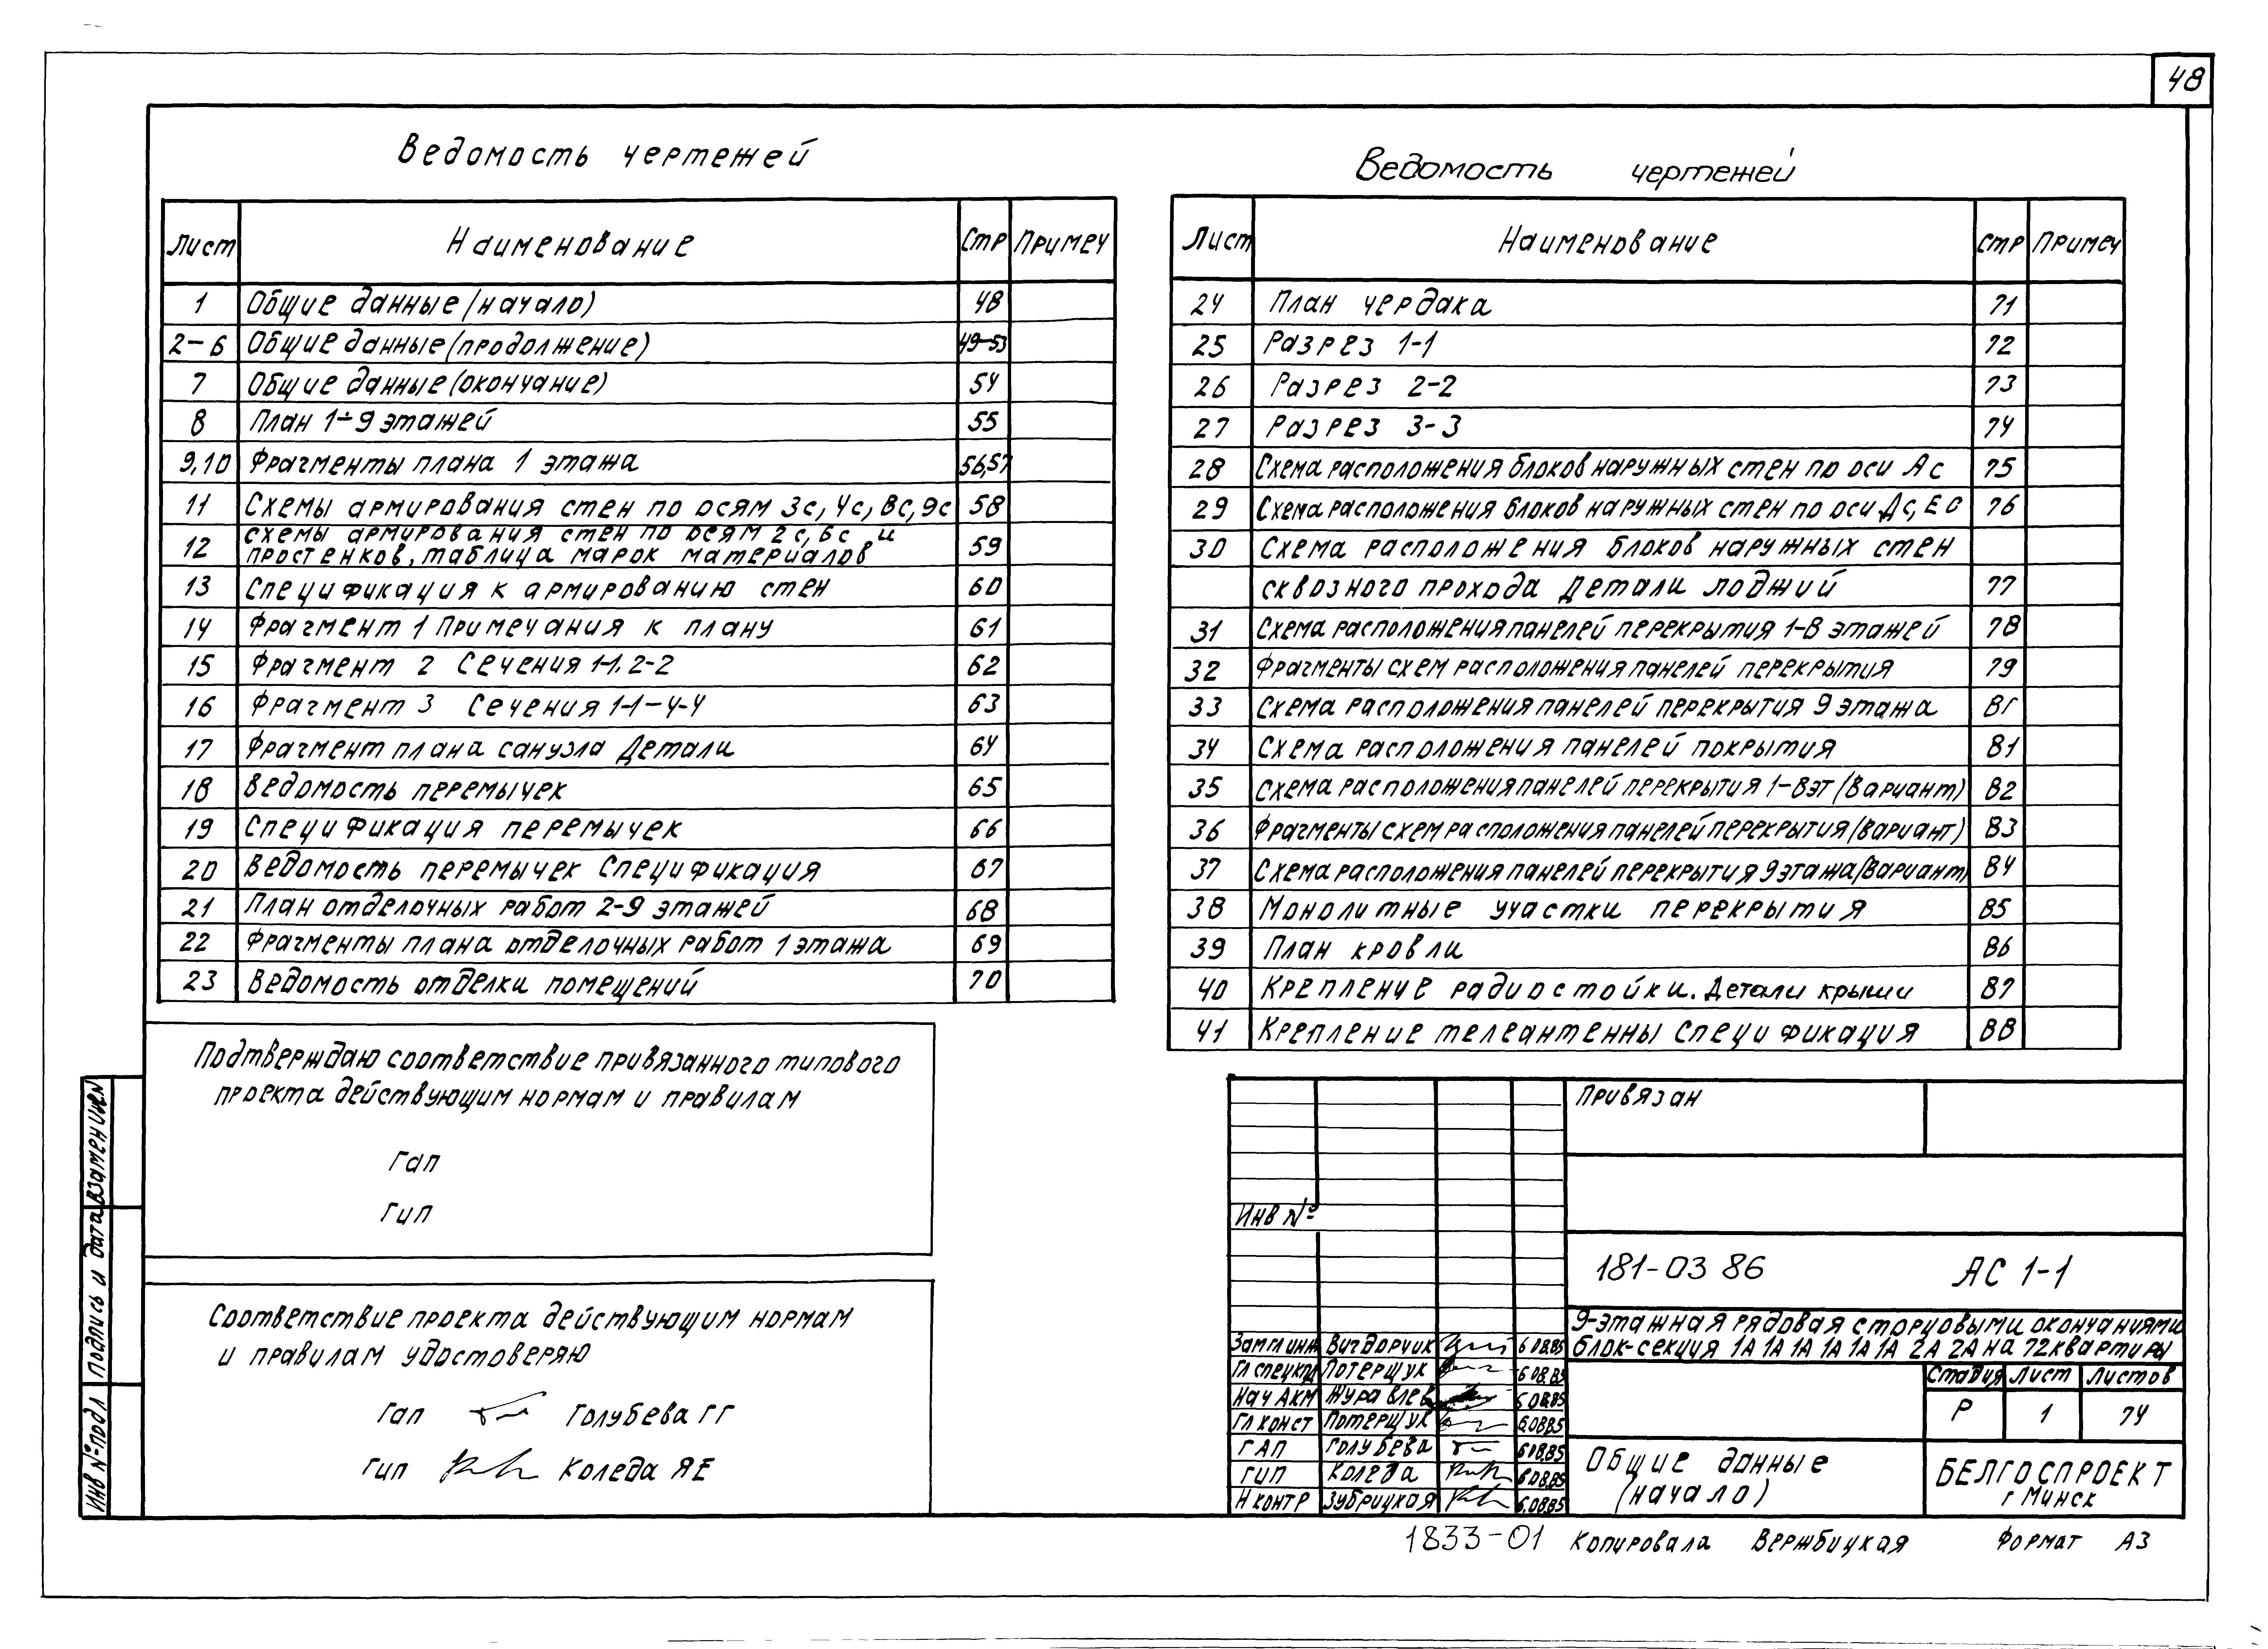 48
Ведомость чертежей
Лист Наименование Стр Примеч
1 Общие данные (начало) 48
2-6 Общие данные (продолжение) 49-53
7 Общие данные (окончание) 54
8 План 1÷9 этажей 55
9,10 Фрагменты плана 1 этажа 56,57
11 Схемы армирования стен по осям 3с, 4с, 8с, 9с 58
12 схемы армирования стен по осям 2с, 6с и
простенков, таблица марок материалов 59
13 Спецификация к армированию стен 60
14 Фрагмент 1 Примечания к плану 61
15 Фрагмент 2 Сечения 1-1, 2-2 62
16 Фрагмент 3 Сечения 1-1-4-4 63
17 Фрагмент плана санузла Детали 64
18 Ведомость перемычек 65
19 Спецификация перемычек 66
20 Ведомость перемычек Спецификация 67
21 План отделочных работ 2-9 этажей 68
22 Фрагменты плана отделочных работ 1 этажа 69
23 Ведомость отделки помещений 70
Ведомость чертежей
Лист Наименование Стр Примеч
24 План чердака 71
25 Разрез 1-1 72
26 Разрез 2-2 73
27 Разрез 3-3 74
28 Схема расположения блоков наружных стен по оси Ас 75
29 Схема расположения блоков наружных стен по оси Дс, Ес 76
30 Схема расположения блоков наружных стен
сквозного прохода Детали лоджий 77
31 Схема расположения панелей перекрытия 1-8 этажей 78
32 Фрагменты схем расположения панелей перекрытия 79
33 Схема расположения панелей перекрытия 9 этажа
34 Схема расположения панелей покрытия 81
35 Схема расположения панелей перекрытия 1-8эт (Вариант) 82
36 Фрагменты схем расположения панелей перекрытия (Вариант) 83
37 Схема расположения панелей перекрытия 9 этажа (Вариант) 84
38 Монолитные участки перекрытия 85
39 План кровли 86
40 Крепление радиостойки. Детали крыши 87
41 Крепление телеантенны Спецификация 88
Подтверждаю соответствие привязанного типового
проекта действующим нормам и правилам
Гап
Гип
Соответствие проекта действующим нормам
и правилам удостоверяю
Гап Голубева ГГ
Гип Коледа ЯЕ
Взамен инв.N
Подпись и дата
Инв №подл
Привязан
Инв №
181-03 86 АС 1-1
9-этажная рядовая с торцовыми окончаниями
блок-секция 1А 1А 1А 1А 1А 1А 2А 2А на 72 квартиры
Зам гл инж Вигдорчик 6 08.85
Гл спец кпд Потерщук 6 08.85
Нач АКМ Журавлев 6 08.85
Гл конст Потерщук 6.08.85
ГАП Голубева 6 08.85
ГИП Коледа 6 08.85
Н контр Зубрицкая 6.08.85
Стадия Лист Листов
Р 1 74
Общие данные
(начало)
БЕЛГОСПРОЕКТ
г Минск
1833-01 Копировала Вержбицкая Формат А3